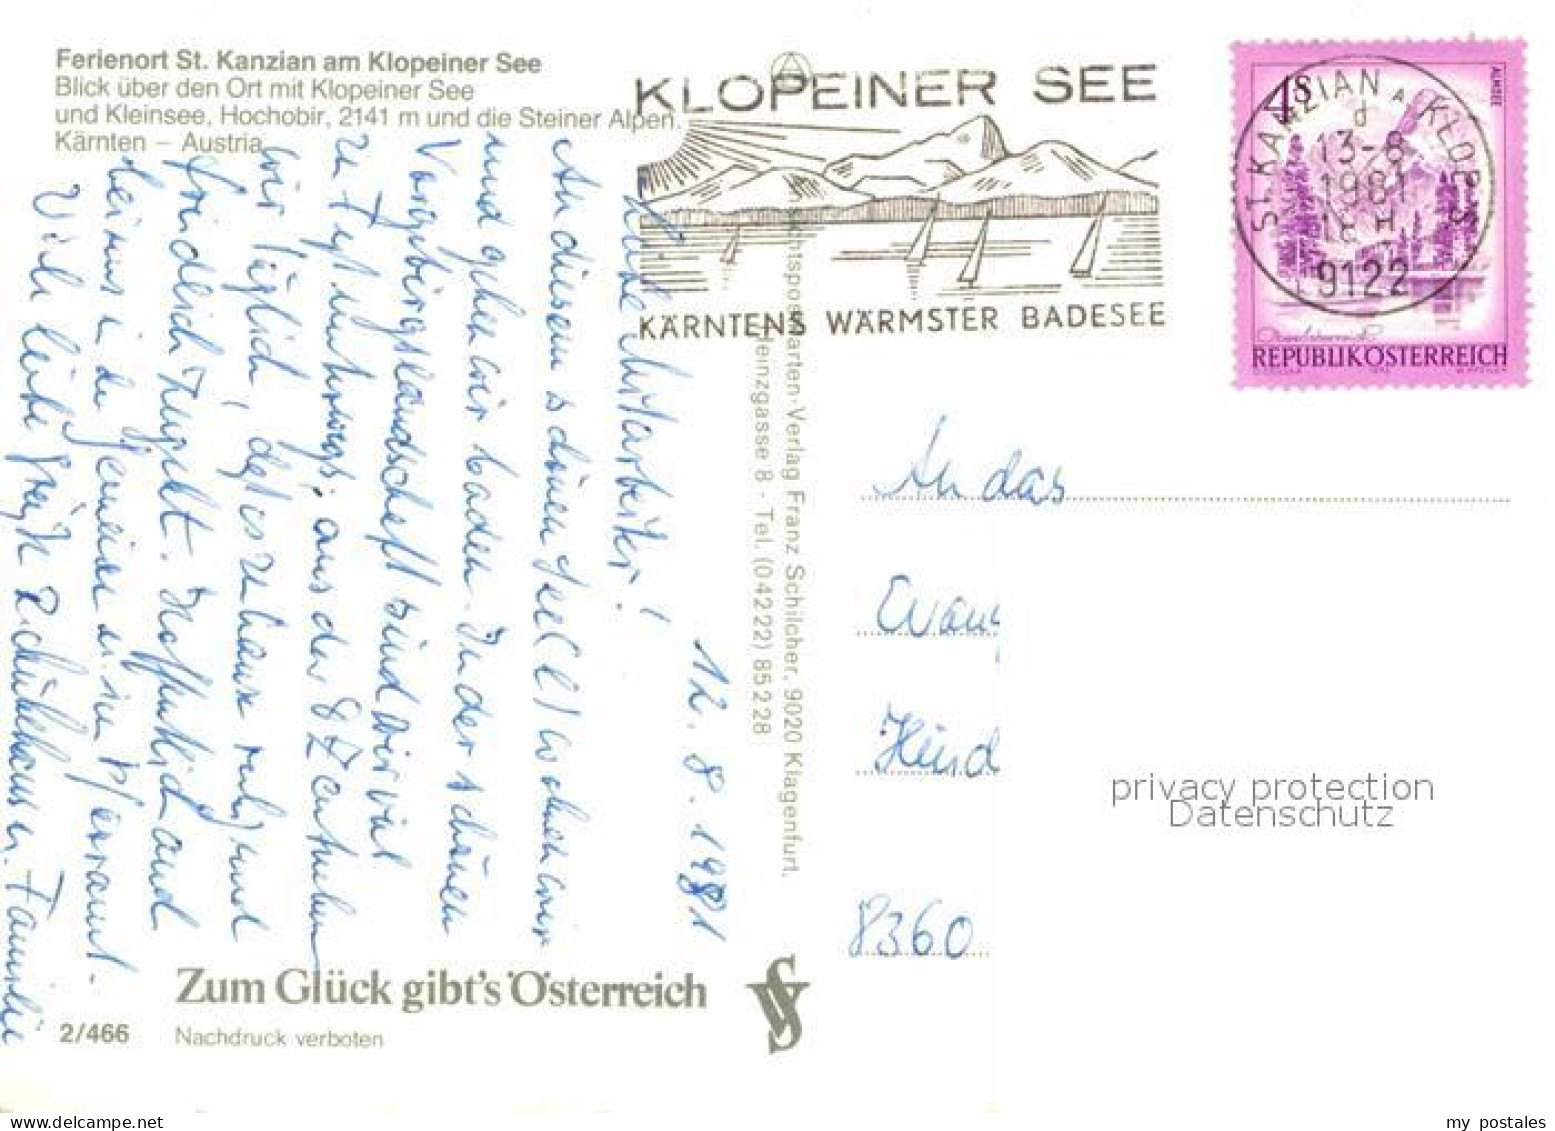 Ferienort St. Kanzian am Klopeiner See
Blick über den Ort mit Klopeiner See
und Kleinsee, Hochobir, 2141 m und die Steiner Alpen.
Kärnten – Austria
KLOPEINER SEE
KÄRNTENS WÄRMSTER BADESEE
4S
ALMSEE
ST. KANZIAN A. KLOPEINER S.
d
13-8
1981
9122
Oberösterreich
REPUBLIK ÖSTERREICH
12. 8. 1981
Liebe Mitarbeiter!
An diesem schönen See (2) wohnen wir
und gehen wir baden. In der schönen
Vorgebirgslandschaft sind wir viel
zu Fuß unterwegs; aus der
wir täglich, daß es zuhause und
friedlich zugeht. Hoffentlich auch
bei uns in der Gemeinde u. im Pfarramt.
Viele liebe Grüße Familie
Ansichtspostkarten-Verlag Franz Schilcher, 9020 Klagenfurt,
Heinzgasse 8 · Tel. (04222) 85228
An das
Evang
8360
privacy protection
Datenschutz
Zum Glück gibt's Österreich
2/466
Nachdruck verboten
my postales